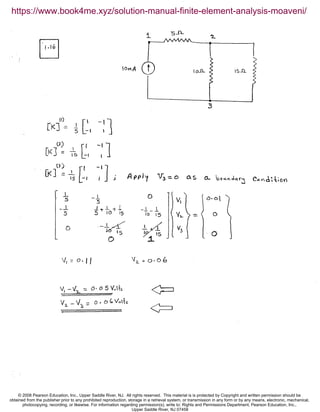 https://www.book4me.xyz/solution-manual-finite-element-analysis-moaveni/
1.16
1 5Ω 2
10mA 10Ω 15Ω
3
[K]^(1) = 1/5 [1 -1; -1 1]
[K]^(2) = 1/10 [1 -1; -1 1]
[K]^(3) = 1/15 [1 -1; -1 1] ; Apply V3=0 as a boundary Condition
[1/5 -1/5 0] {V1} {0.01}
[-1/5 1/5+1/10+1/15 -1/10-1/15] {V2} = {0}
[0 -1/10 1/15 1/10 1/15] {V3} {0}
0 1
V1 = 0.11 V2 = 0.06
V1-V2 = 0.05 Volts
V2-V3 = 0.06 Volts
© 2008 Pearson Education, Inc., Upper Saddle River, NJ. All rights reserved. This material is protected by Copyright and written permission should be
obtained from the publisher prior to any prohibited reproduction, storage in a retrieval system, or transmission in any form or by any means, electronic, mechanical,
photocopying, recording, or likewise. For information regarding permission(s), write to: Rights and Permissions Department, Pearson Education, Inc.,
Upper Saddle River, NJ 07458